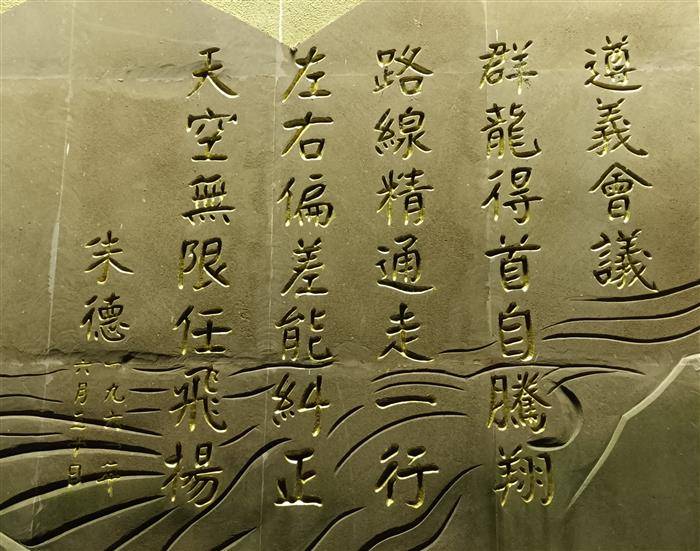 遵義會議
群龍得首自騰翔
路線精通走一行
左右偏差能糾正
天空無限任飛揚
朱德
一九六一年
六月二十日